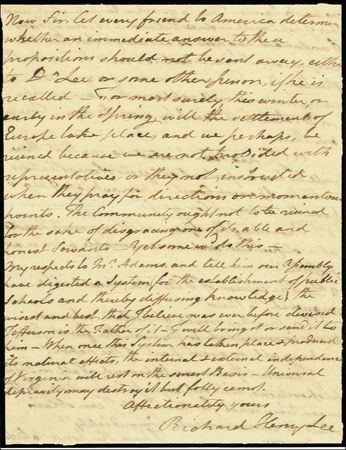 Now Sir, let every friend to America determine
whether an immediate answer to these
propositions should not be sent away either
to Dr. Lee, or some other person, if he is
recalled — For most surely, this winter, or
early in the Spring, will the settlement of
Europe take place, and we perhaps, be
ruined because we are not provided with
representatives, or they not instructed
when they pray for directions on momentous
points. The Community ought not to be ruined
for the sake of disgracing one of its able and
honest Servants — Yet some wish this —
My respects to Mr. Adams, and tell him our Assembly
have digested a System for the establishment of public
Schools and thereby diffusing knowledge, the
wisest and best that I believe was ever before devised
Jefferson is the Father of it — I will bring it or send it to
him — When once this System has taken place & produced
its natural effects, the internal & external independence
of Virginia will rest on the surest Basis — Universal
depravity may destroy it but folly cannot.
Affectionately yours
Richard Henry Lee